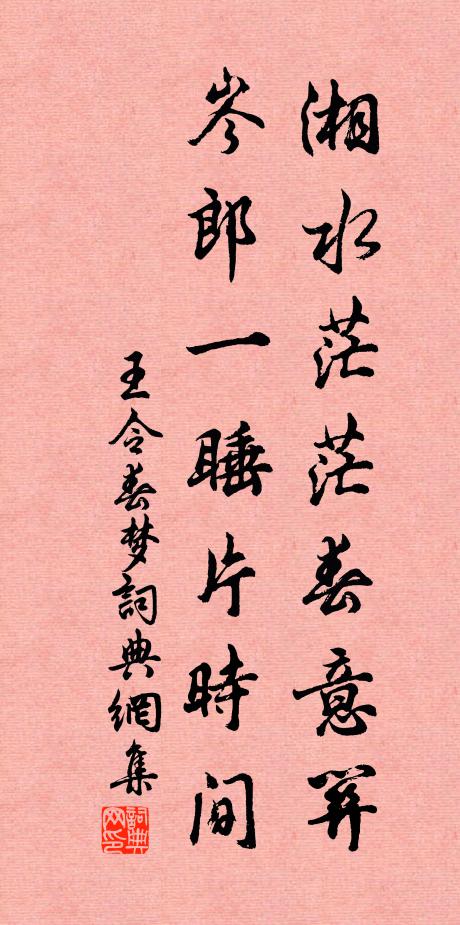 湘水茫茫春意關
岑郎一睡片時間
王令春梦詞典網集
詞典网印